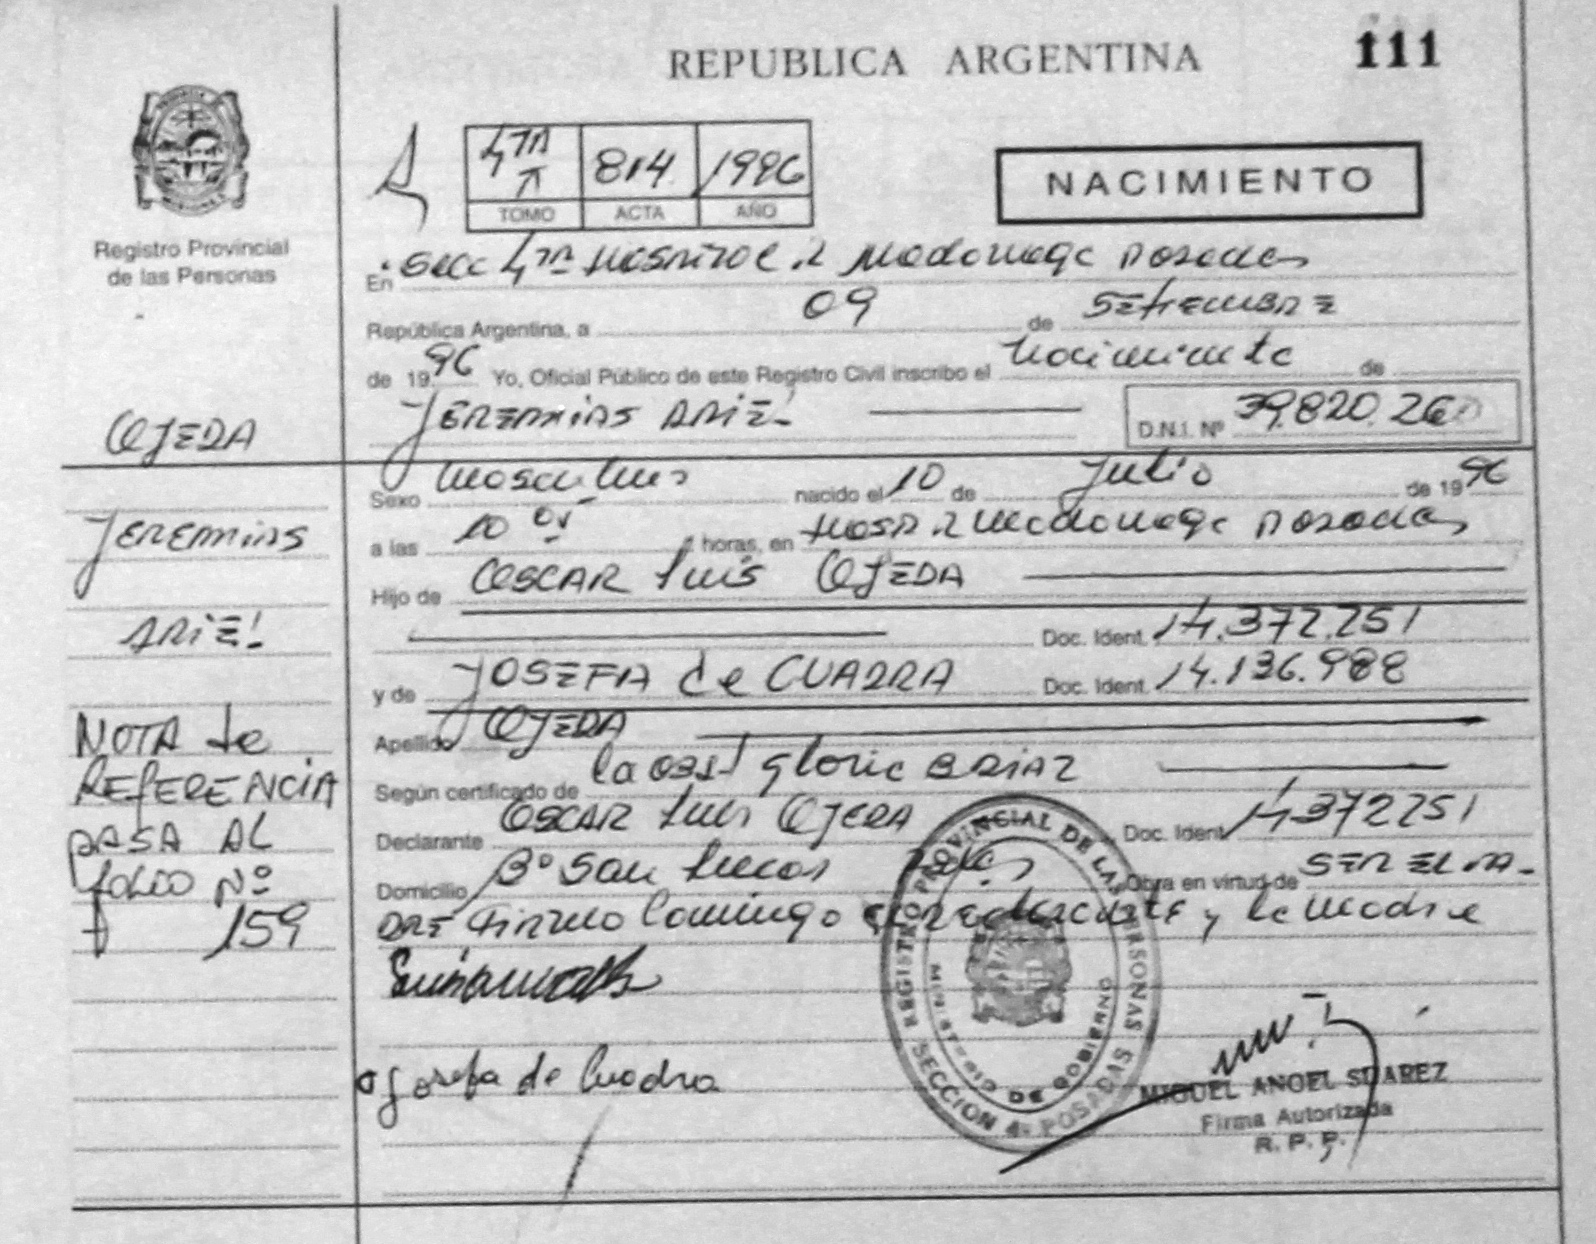 REPUBLICA ARGENTINA
111
Registro Provincial
de las Personas
4TA
814
1996
TOMO
ACTA
AÑO
NACIMIENTO
En Secc 4ta Hospital R Madariaga Posadas
República Argentina, a 09 de SETIEMBRE
de 1996 Yo, Oficial Público de este Registro Civil inscribo el Nacimiento de
JEREMIAS ARIEL
D.N.I. Nº 39.820.260
Sexo Masculino nacido el 10 de Julio de 1996
a las 10 horas, en Hosp. R Madariaga Posadas
Hijo de OSCAR Luis OJEDA
Doc. Ident. 14.372.251
y de JOSEFA de CUADRA Doc. Ident. 14.136.988
Apellido OJEDA
Según certificado de la OBST Gloria
Declarante OSCAR Luis OJEDA Doc. Ident. 14372251
Domicilio Bº San Lucas Pdas Obra en virtud de SER EL PA-
DRE Firman Conmigo el declarante y la madre
Josefa de Cuadra
OJEDA
JEREMIAS
ARIEL
NOTA de
REFERENCIA
PASA AL
FOLIO Nº
159
REGISTRO PROVINCIAL DE LAS PERSONAS
MINISTERIO DE GOBIERNO
SECCION 4ª POSADAS
MIGUEL ANGEL SUAREZ
Firma Autorizada
R. P. P.